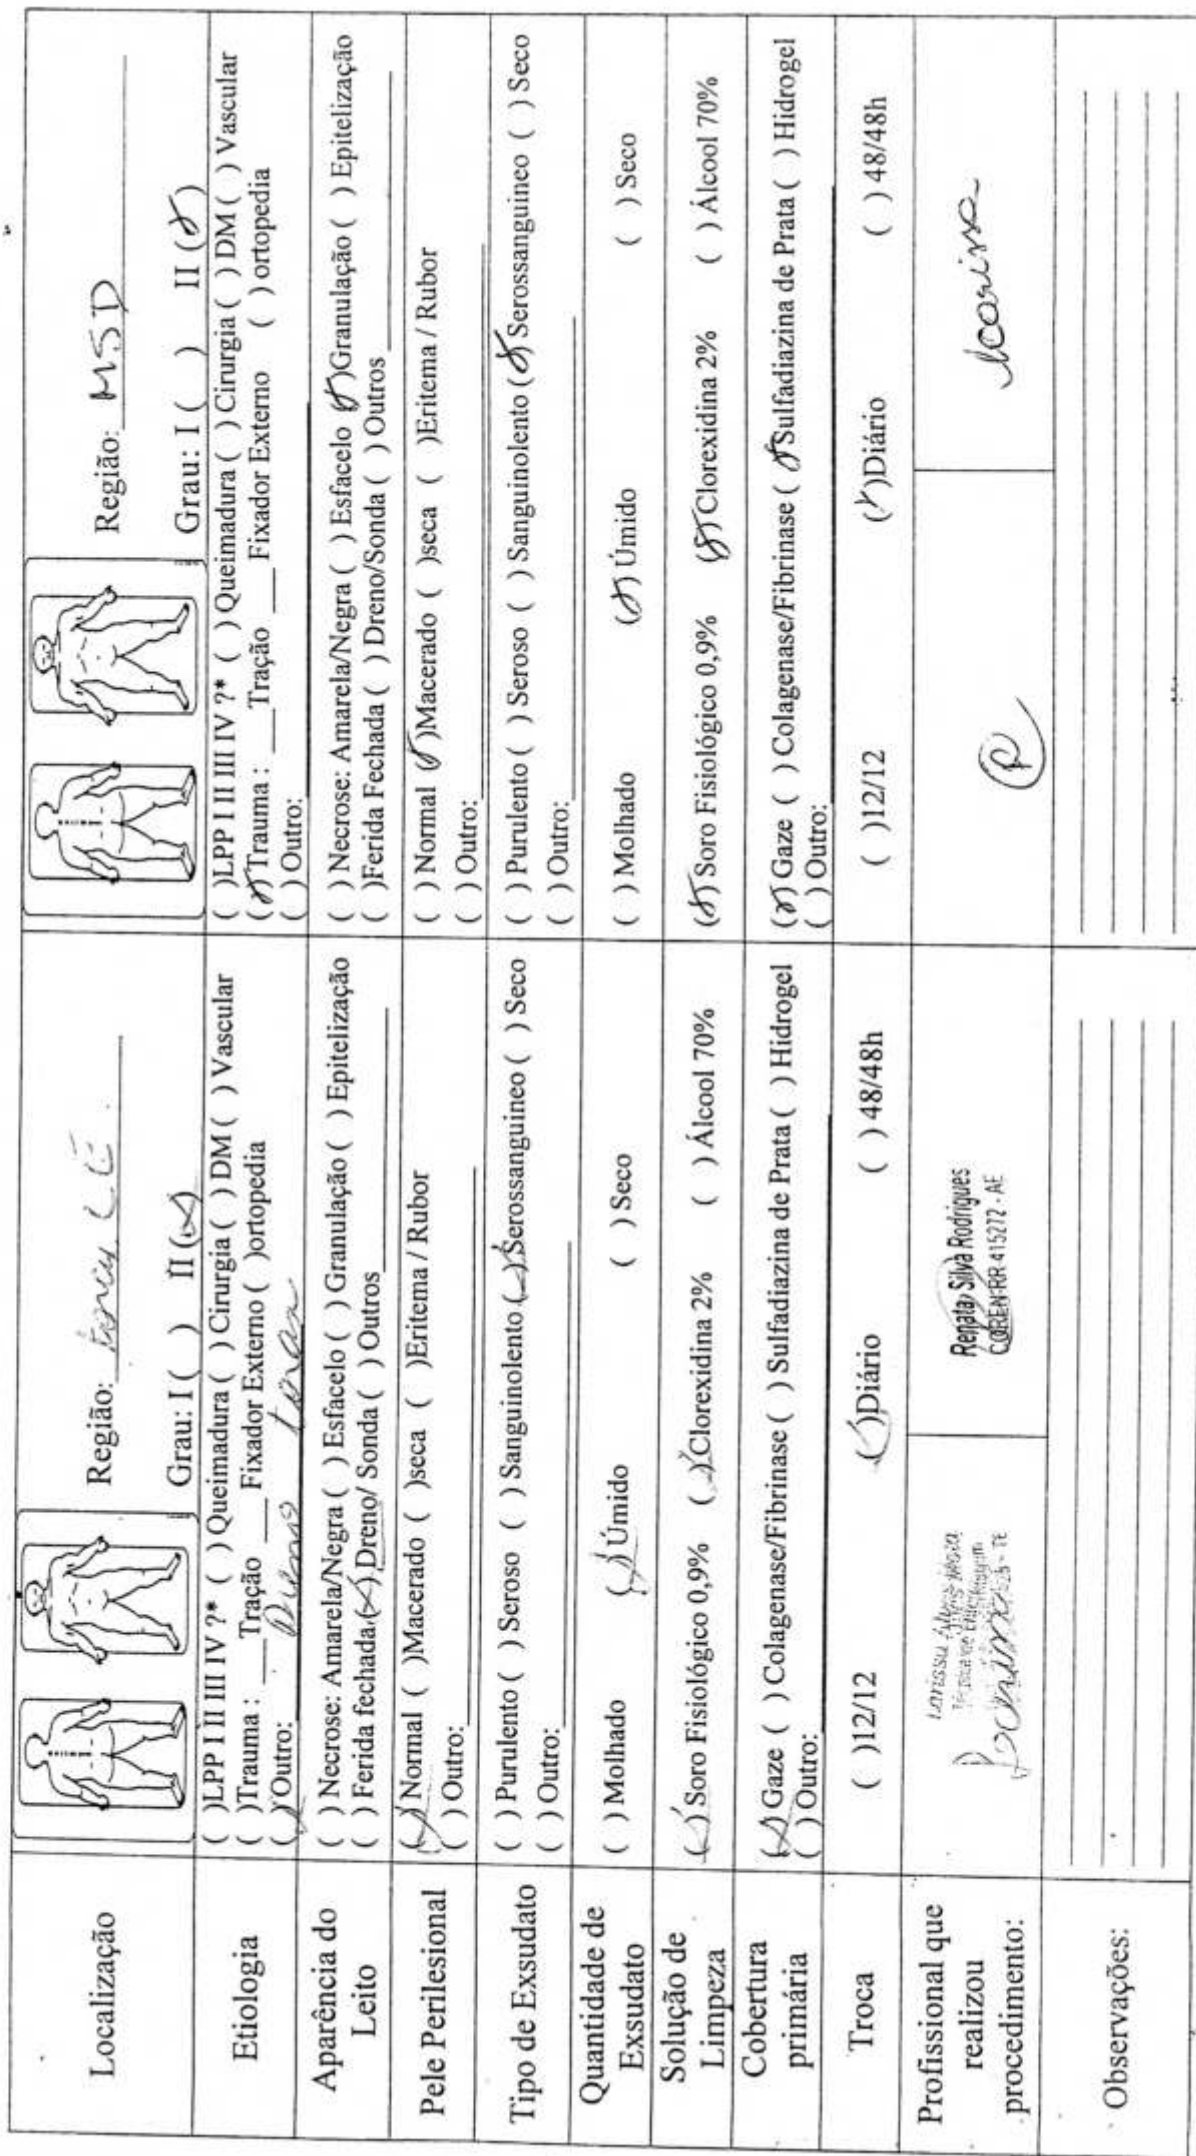 Localização
Região: Torax LE.
Grau: I ( ) II (x)
Região: MSD
Grau: I ( ) II (x)
Etiologia
( )LPP I II III IV ?* ( ) Queimadura ( ) Cirurgia ( ) DM ( ) Vascular
( )Trauma : ___Tração ___Fixador Externo ( )ortopedia
(/) Outro: Dreno torax
( )LPP I II III IV ?* ( ) Queimadura ( ) Cirurgia ( ) DM ( ) Vascular
(x)Trauma : ___Tração ___Fixador Externo ( ) ortopedia
( ) Outro:
Aparência do
Leito
( ) Necrose: Amarela/Negra ( ) Esfacelo ( ) Granulação ( ) Epitelização
( ) Ferida fechada (x) Dreno/ Sonda ( ) Outros
( ) Necrose: Amarela/Negra ( ) Esfacelo (x)Granulação ( ) Epitelização
( )Ferida Fechada ( ) Dreno/Sonda ( ) Outros
Pele Perilesional
(x) Normal ( )Macerado ( )seca ( )Eritema / Rubor
( ) Outro:
( ) Normal (x)Macerado ( )seca ( )Eritema / Rubor
( ) Outro:
Tipo de Exsudato
( ) Purulento ( ) Seroso ( ) Sanguinolento (x)Serossanguineo ( ) Seco
( ) Outro:
( ) Purulento ( ) Seroso ( ) Sanguinolento (x)Serossanguineo ( ) Seco
( ) Outro:
Quantidade de
Exsudato
( ) Molhado (x) Úmido ( ) Seco
( ) Molhado (x) Úmido ( ) Seco
Solução de
Limpeza
(x) Soro Fisiológico 0,9% (x)Clorexidina 2% ( ) Álcool 70%
(x) Soro Fisiológico 0,9% (x)Clorexidina 2% ( ) Álcool 70%
Cobertura
primária
(x) Gaze ( ) Colagenase/Fibrinase ( ) Sulfadiazina de Prata ( ) Hidrogel
( ) Outro:
(x) Gaze ( ) Colagenase/Fibrinase (x)Sulfadiazina de Prata ( ) Hidrogel
( ) Outro:
Troca
( )12/12 (/)Diário ( ) 48/48h
( )12/12 (x)Diário ( ) 48/48h
Profissional que
realizou
procedimento:
Larissa
Técnica de Enfermagem
Renata Silva Rodrigues
COREN-RR 415272 - AE
Observações: